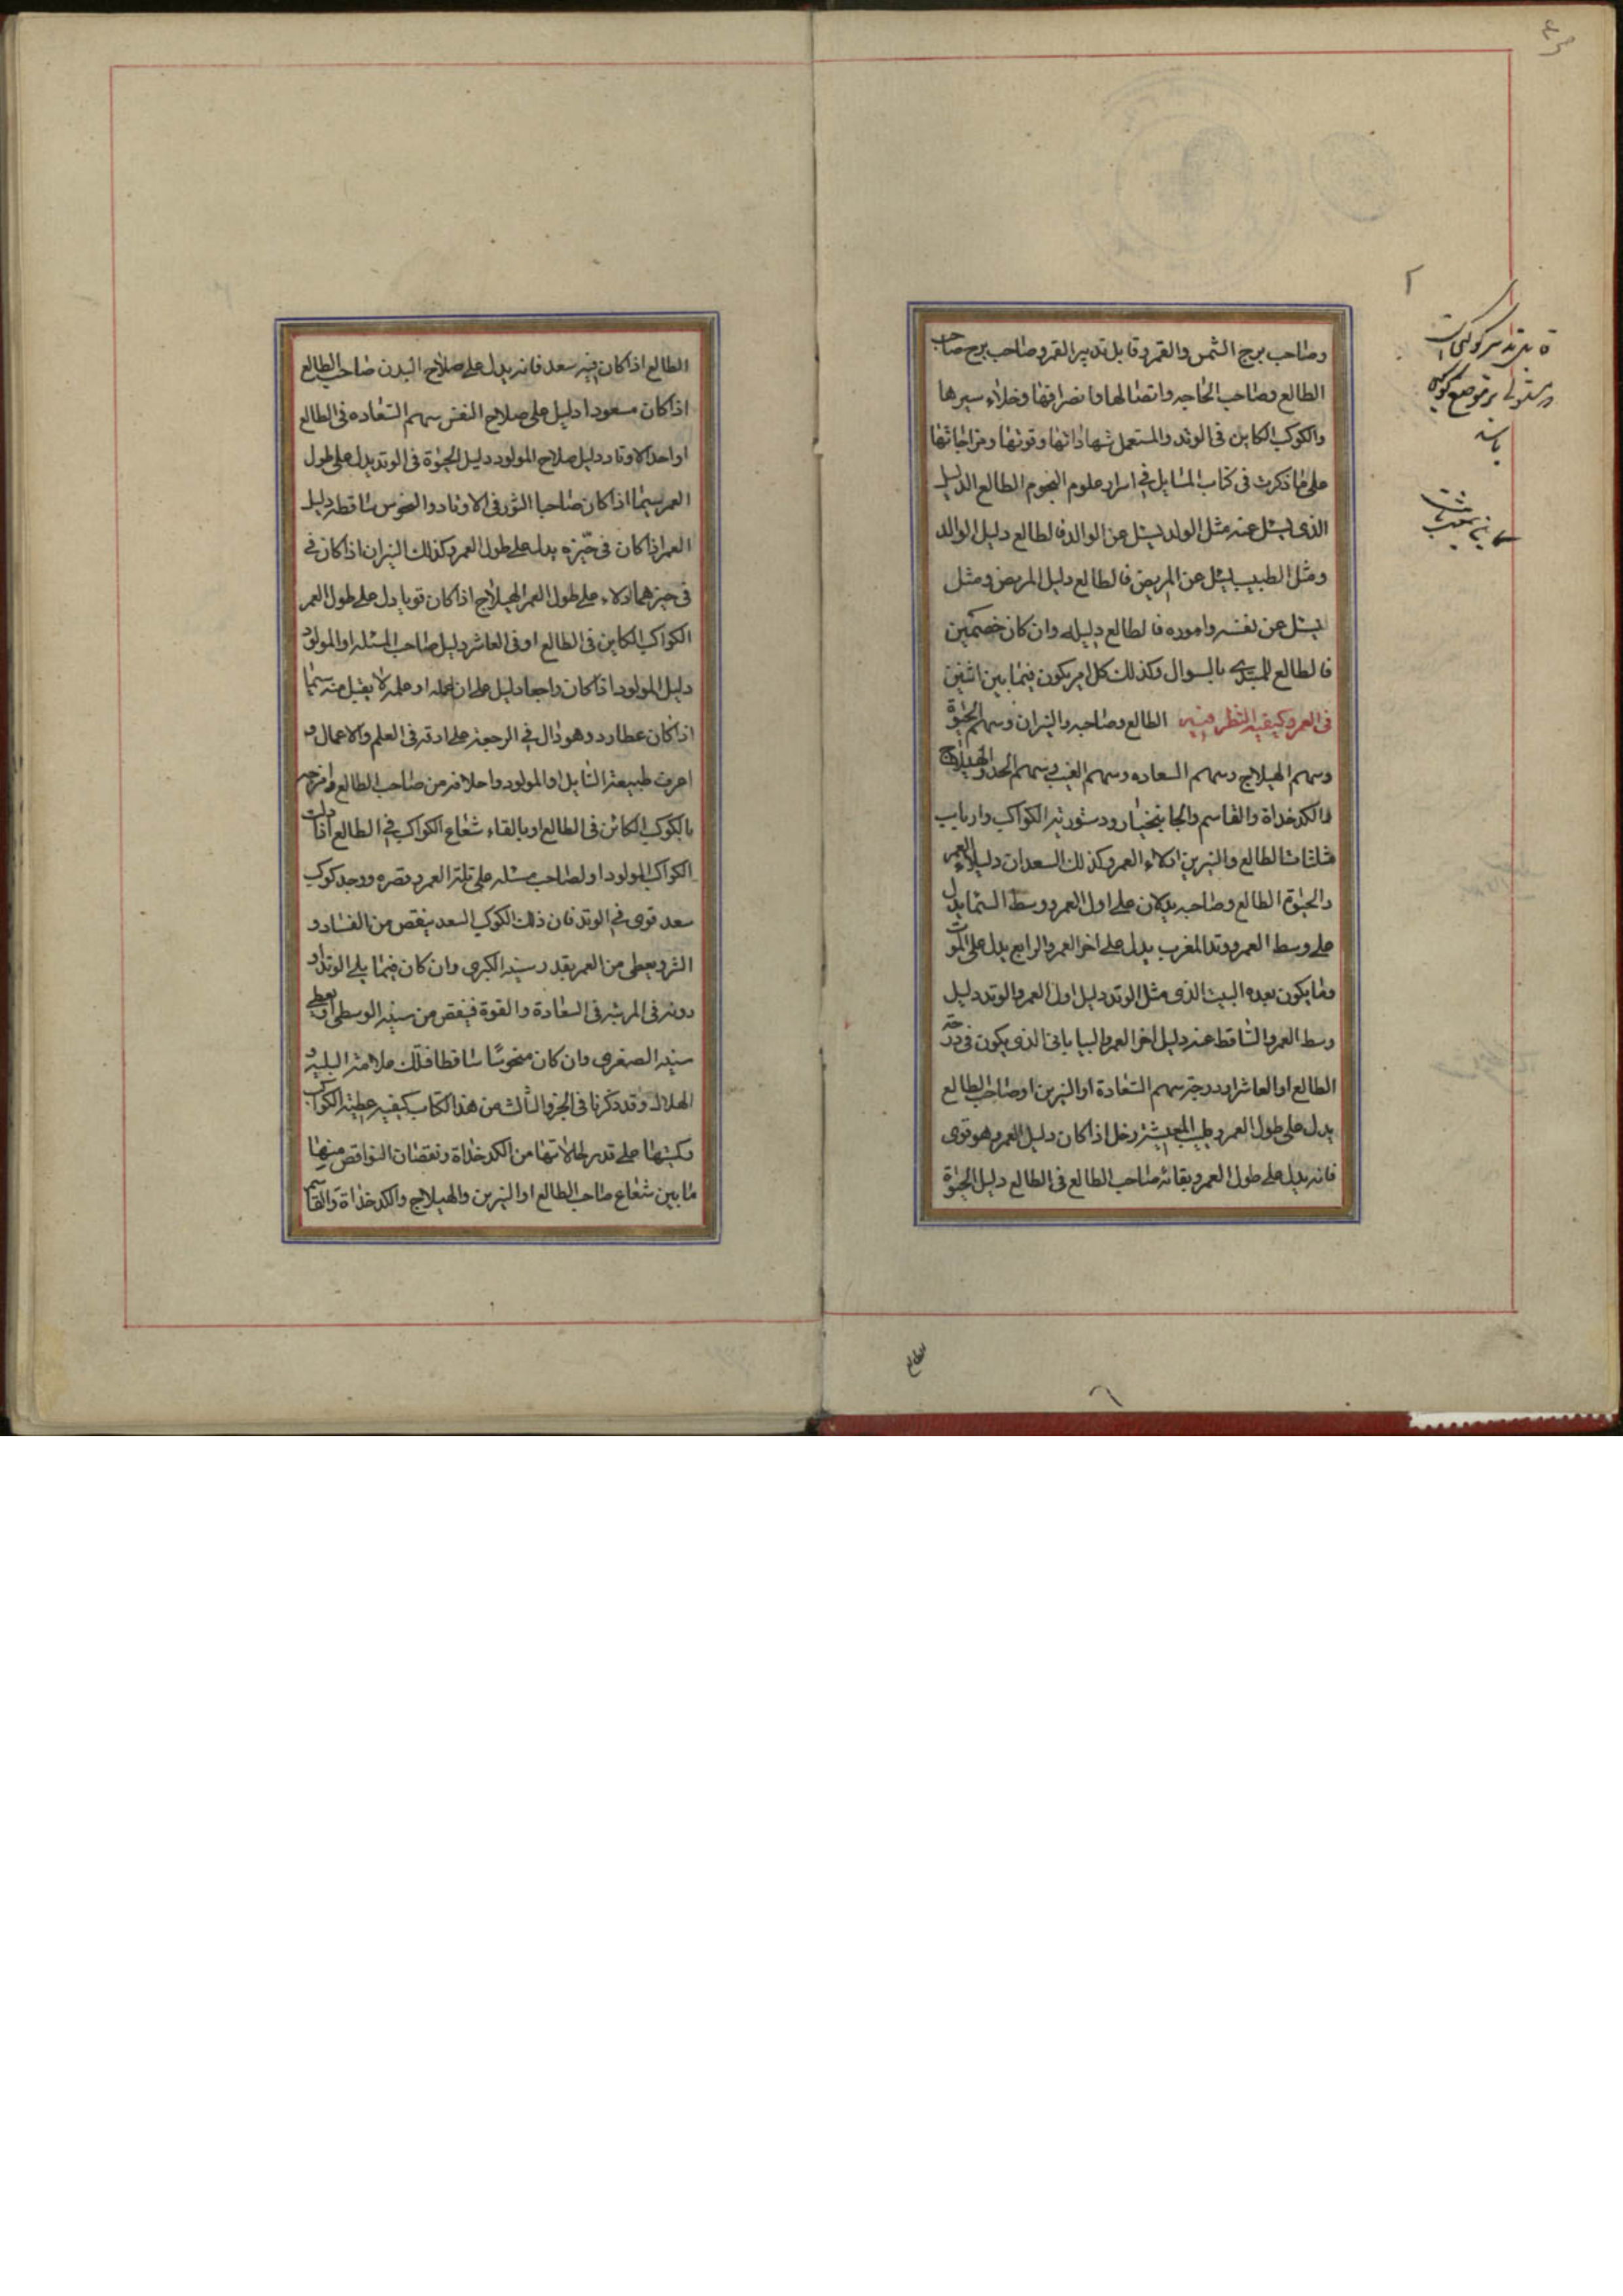 وصاحب برج الشمس والقمر وقابل تدبير القمر وصاحب برج صاحب
الطالع وصاحب الحاجه واتصالها وانصرافها وخلاء سيرها
والكوكب الكاين فى الوتد والمستعمل شهاداتها وقوتها ومزاجاتها
على ما ذكرت فى كتاب المسايل فى اسرار علوم النجوم الطالع الدليل
الذى يسئل عنه مثل الولد يسئل عن الوالد فالطالع دليل الوالد
ومثل الطبيب يسئل عن المريض فالطالع دليل المريض ومثل
يسئل عن نفسه واموره فالطالع دليله وان كان خصمين
فالطالع للمبتدى بالسوال وكذلك كل امر يكون فيما بين اثنين
فى العمر وكيفيه النظر فيه الطالع وصاحبه والنيران وسهم الحيوة
وسهم الهيلاج وسهم السعاده وسهم الغيب وسهم الجد والهيلاج
والكدخداة والقاسم والجانبختار ودستوريه الكواكب وارباب
مثلثات الطالع والنيرين ادلاء العمر وكذلك السعدان دليلا العمر
والحيوة الطالع وصاحبه يدلان على اول العمر ووسط السما يدل
على وسط العمر ووتد المغرب يدل على اخر العمر والرابع يدل على الموت
وما يكون بعده البيت الذى مثل الوتد دليل اول العمر والوتد دليل
وسط العمر والساقط عنه دليل اخر العمر والبيابانى الذى يكون فى درجة
الطالع او العاشر او درجة سهم السعادة او النيرين او صاحب الطالع
يدل على طول العمر وطيب المعيشة زحل اذا كان دليل العمر وهو قوى
فانه يدل على طول العمر وبقائه صاحب الطالع فى الطالع دليل الحيوة
الطالع
الطالع اذا كان فيه سعد فانه يدل على صلاح البدن صاحب الطالع
اذا كان مسعودا دليل على صلاح النفس سهم السعاده فى الطالع
او احد الاوتاد دليل صلاح المولود دليل الحيوة فى الوتد يدل على طول
العمر سيما اذا كان صاحبا النور فى الاوتاد والنحوس ساقطه دليل
العمر اذا كان فى حيزه يدل على طول العمر وكذلك النيران اذا كان فى
فى حيزهما ادلاء على طول العمر الهيلاج اذا كان قويا دل على طول العمر
الكواكب الكاين فى الطالع او فى العاشر دليل صاحب المسئله او المولود
دليل المولود اذا كان راجعا دليل على ان عمله او علمه لا يقبل منه سيما
اذا كان عطارد وهو دال فى الرجعة على ادقه فى العلم والاعمال و
اعرف طبيعة السايل او المولود واخلاقه من صاحب الطالع وامزجه
بالكوكب الكائن فى الطالع او بالقاء شعاع الكواكب فى الطالع اذا دلت
الكواكب للمولود او لصاحب مسئله على قلة العمر وقصره ووجد كوكب
سعد قوى فى الوتد فان ذلك الكوكب السعد ينقص من الفساد و
الشر ويعطى من العمر بقدر سنيه الكبرى وان كان فيما يلى الوتد او
دونه فى المرتبه فى السعادة والقوة فينقص من سنيه الوسطى او يعطى
سنيه الصغرى وان كان منحوسا ساقطا فتلك علامة البليه و
الهلاك وقد ذكرنا فى الجزو الثالث من هذا الكتاب كيفيه عطية الكواكب
وكميتها على قدر حالاتها من الكدخداة ونقصان النواقص منها
ما بين شعاع صاحب الطالع او النيرين والهيلاج والكدخداة والقاسم